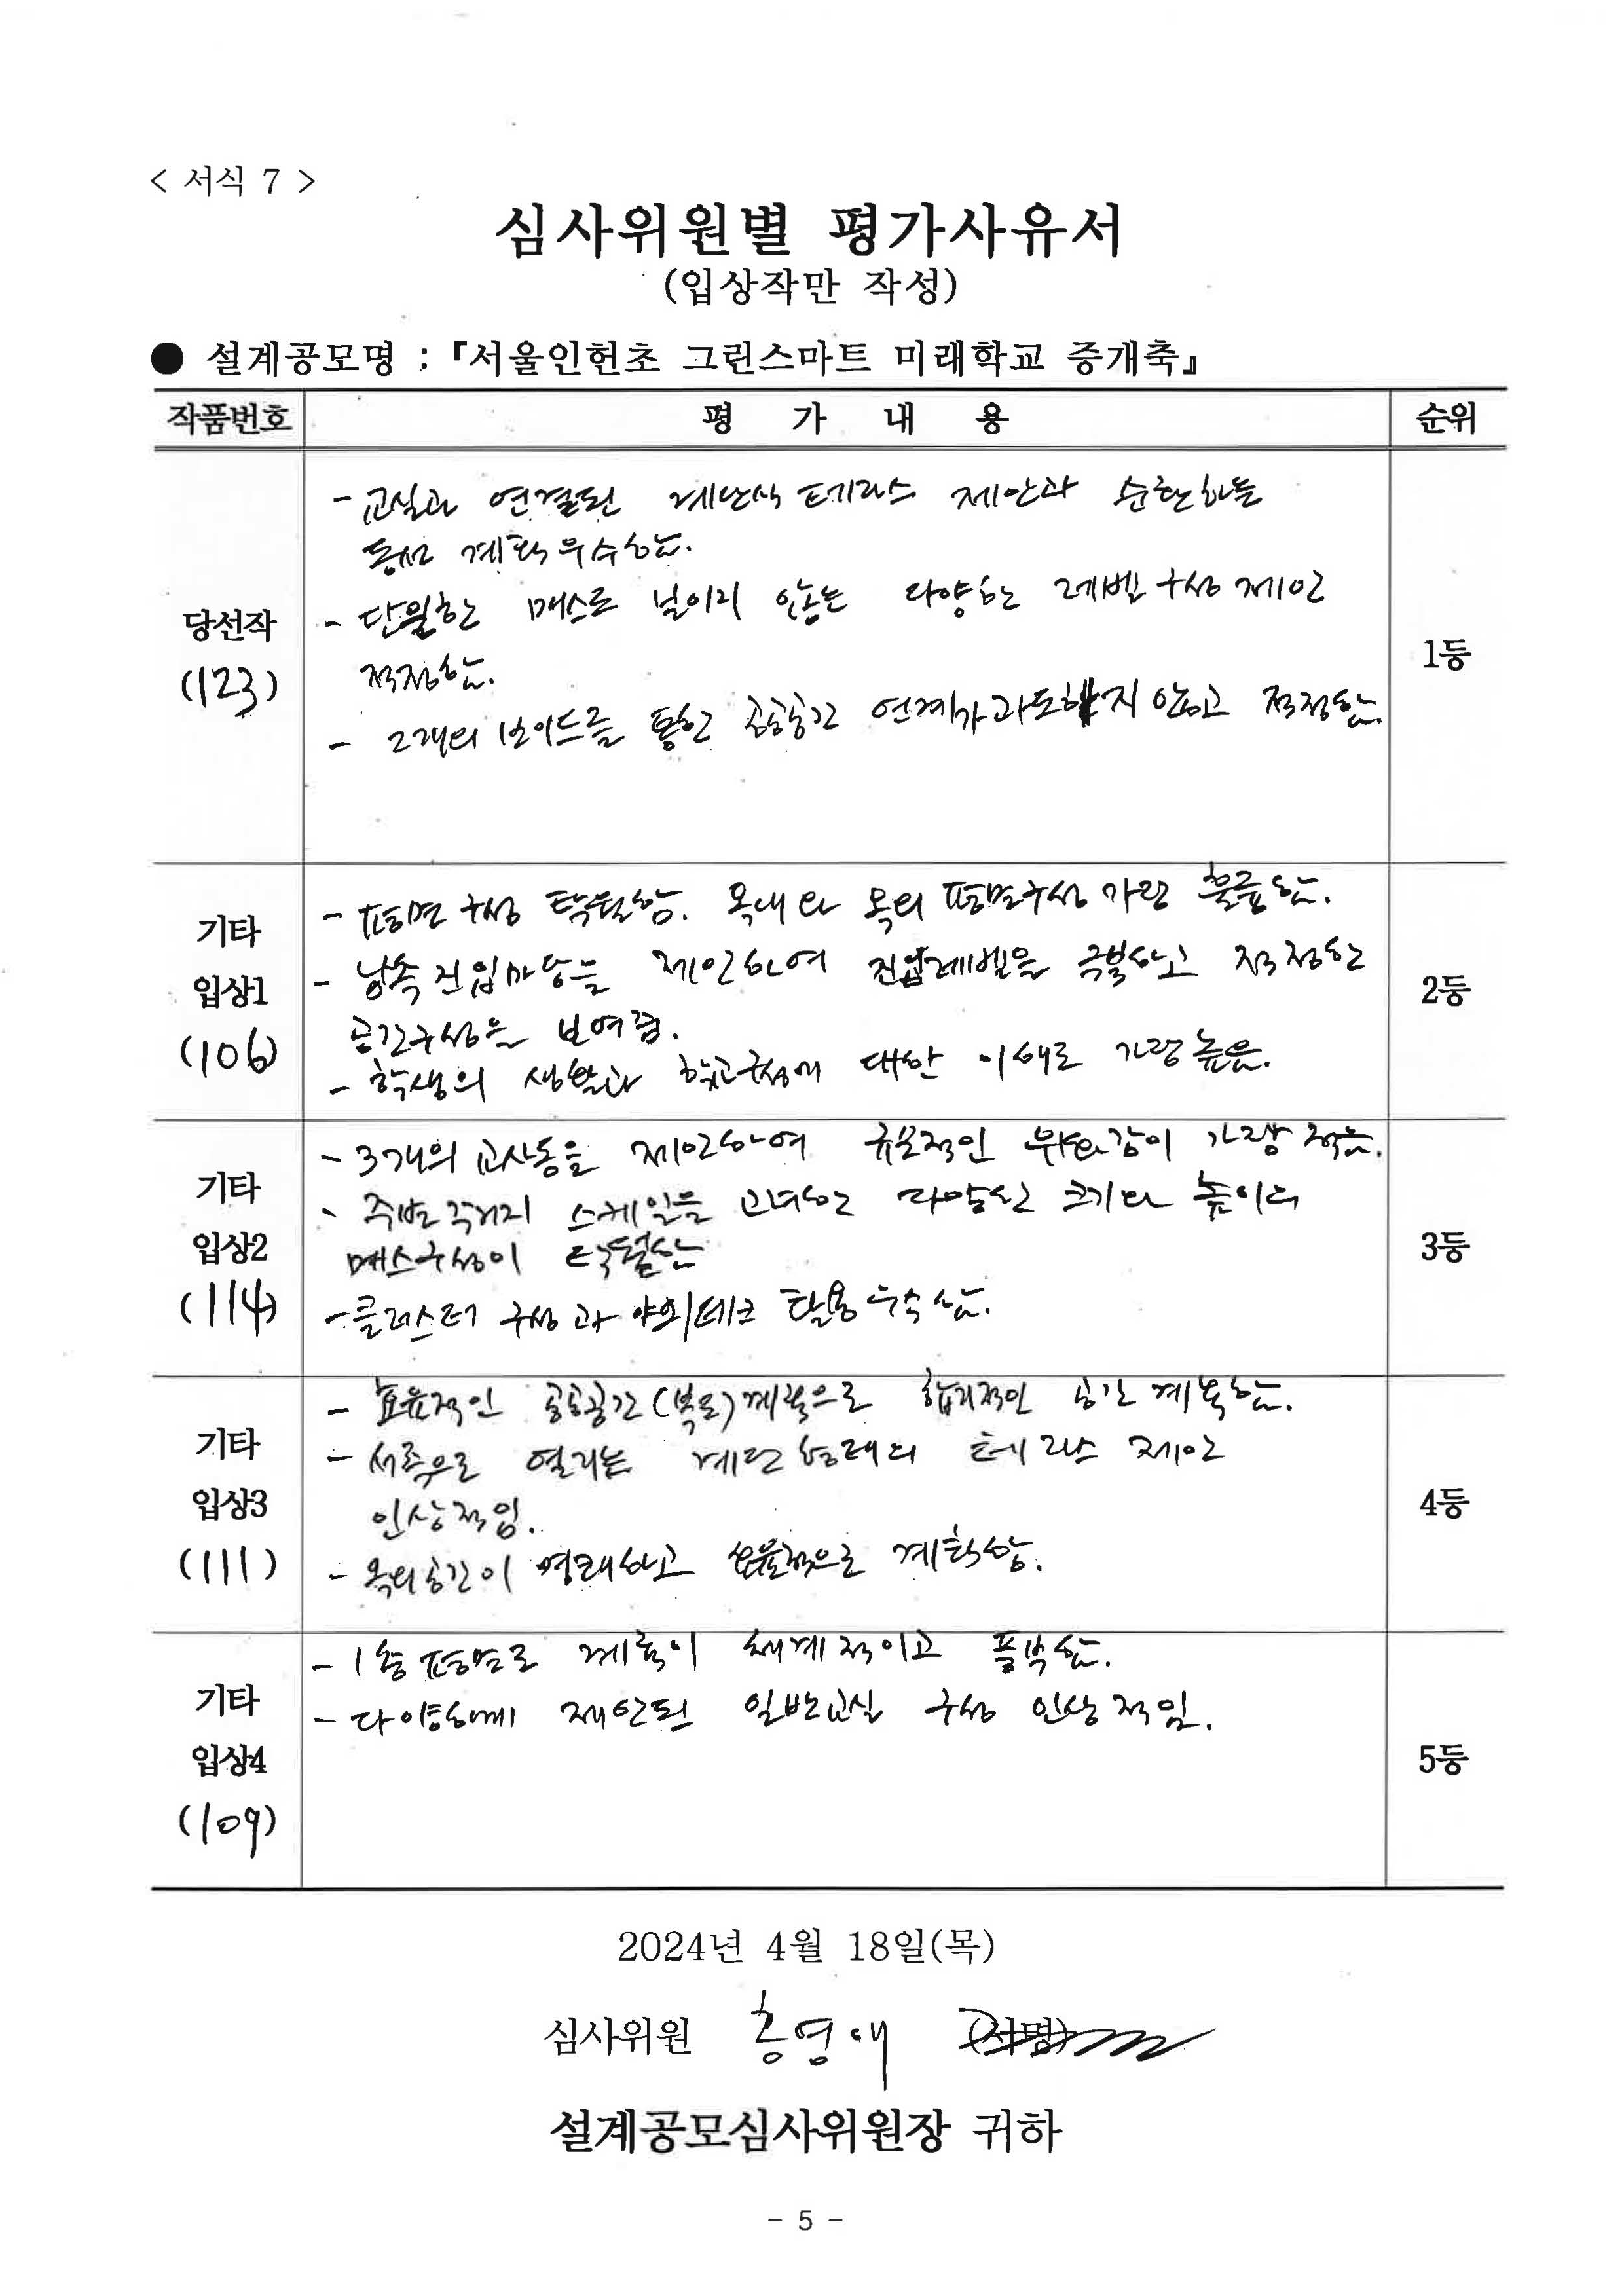 < 서식 7 >
심사위원별 평가사유서
(입상작만 작성)
● 설계공모명 : 『서울인헌초 그린스마트 미래학교 증개축』
작품번호 평 가 내 용 순위
당선작
(123)
- 교실과 연결된 계단식 테라스 제안과 순환하는
동선 계획 우수함.
- 단일한 매스로 보이지 않는 다양한 레벨 구성 제안
적정함.
- 2개의 보이드를 통한 공용공간 연계가 과도하지 않고 적정함.
1등
기타
입상1
(106)
- 평면 구성 탁월함. 옥내와 옥외 평면구성 가장 훌륭함.
- 남측 진입마당을 제안하여 진입레벨을 극복하고 적정한
공간구성을 보여줌.
- 학생의 생활과 학교구성에 대한 이해도 가장 높음.
2등
기타
입상2
(114)
- 3개의 교사동을 제안하여 규모적인 위화감이 가장 적음.
- 주변 주거지 스케일을 고려한 다양한 크기와 높이의
매스구성이 탁월함
- 클러스터 구성과 야외데크 활용 우수함.
3등
기타
입상3
(111)
- 효율적인 공용공간(복도)계획으로 합리적인 공간 계획함.
- 서측으로 열리는 계단 형태의 테라스 제안
인상적임.
- 옥외공간이 명쾌하고 효율적으로 계획함.
4등
기타
입상4
(109)
- 1층 평면도 계획이 체계적이고 풍부함.
- 다양하게 제안된 일반교실 구성 인상적임.
5등
2024년 4월 18일(목)
심사위원 홍영애 (서명)
설계공모심사위원장 귀하
- 5 -